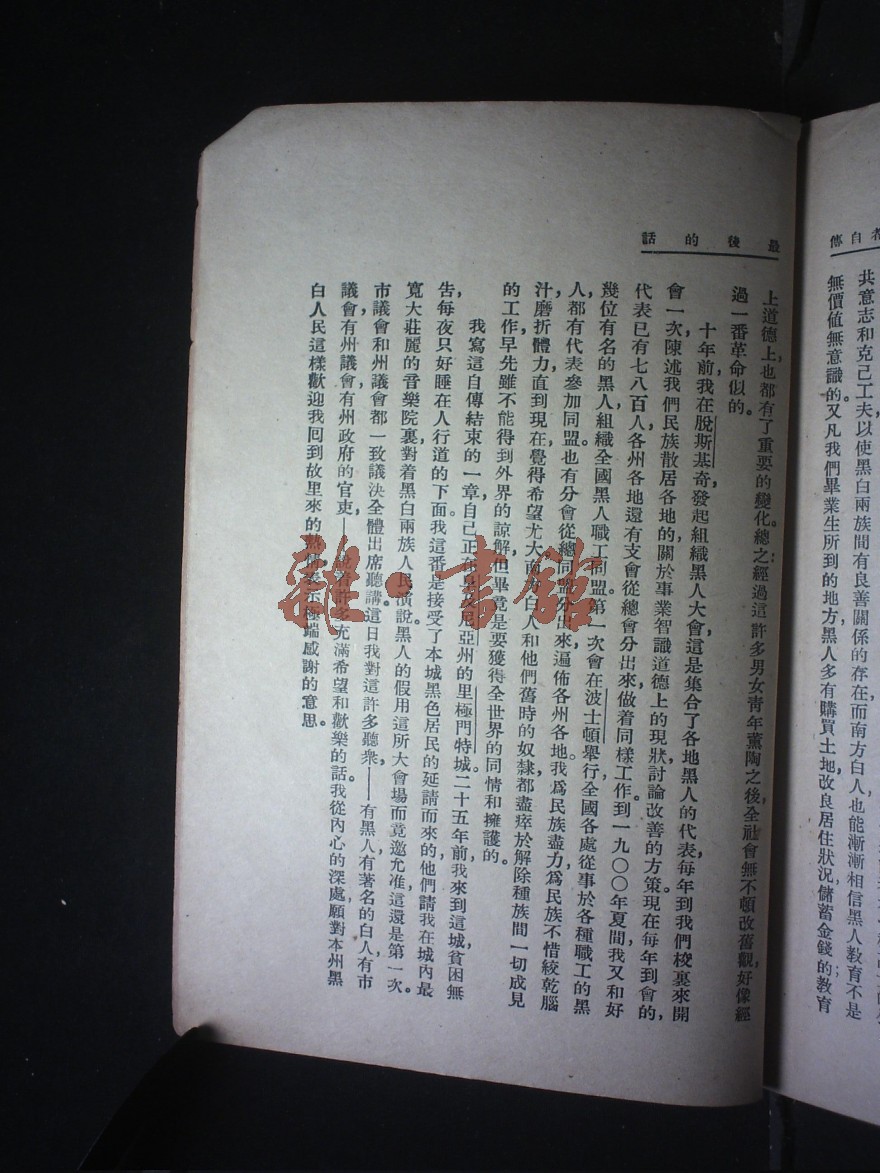 者自傳
共意志和克己工夫以使黑白兩族間有良善關係的存在而南方白人也能漸漸相信黑人教育不是
無價值無意識的。又凡我們畢業生所到的地方，黑人多有購買土地，改良居住狀況，儲蓄金錢的；教育
最後的話
上道德上，也都有了重要的變化。總之：經過這許多男女青年薰陶之後，全社會無不頓改舊觀，好像經
過一番革命似的。
十年前，我在脫斯基奇，發起組織黑人大會，這是集合了各地黑人的代表，每年到我們校裏來開
會一次，陳述我們民族散居各地的關於事業智識道德上的現狀，討論改善的方策。現在每年到會的，
代表已有七八百人，各州各地還有支會從總會分出來，做着同樣工作。到一九〇〇年夏間，我又和好
幾位有名的黑人，組織全國黑人職工同盟。第一次會在波士頓舉行，全國各處從事於各種職工的黑
人，都有代表參加同盟。也有分會從總同盟分出來，遍佈各州各地。我爲民族盡力，爲民族不惜絞乾腦
汁，磨折體力，直到現在，覺得希望尤大，南方白人和他們舊時的奴隸，都盡瘁於解除種族間一切成見
的工作，早先雖不能得到外界的諒解，但畢竟是要獲得全世界的同情和擁護的。
我寫這自傳結束的一章，自己正在尼亞州的里極門特城。二十五年前，我來到這城，貧困無
告，每夜只好睡在人行道的下面。我這番是接受了本城黑色居民的延請而來的，他們請我在城內最
寬大莊麗的音樂院裏，對着黑白兩族人民演說。黑人的假用這所大會場而竟邀允准，這還是第一次。
市議會和州議會都一致議決，全體出席聽講。這日我對這許多聽衆——有黑人，有著名的白人，有市
議會，有州議會，有州政府的官吏——說着許多充滿希望和歡樂的話。我從內心的深處，願對本州黑
白人民這樣歡迎我回到故里來的熱情，表示極端感謝的意思。
雜書館